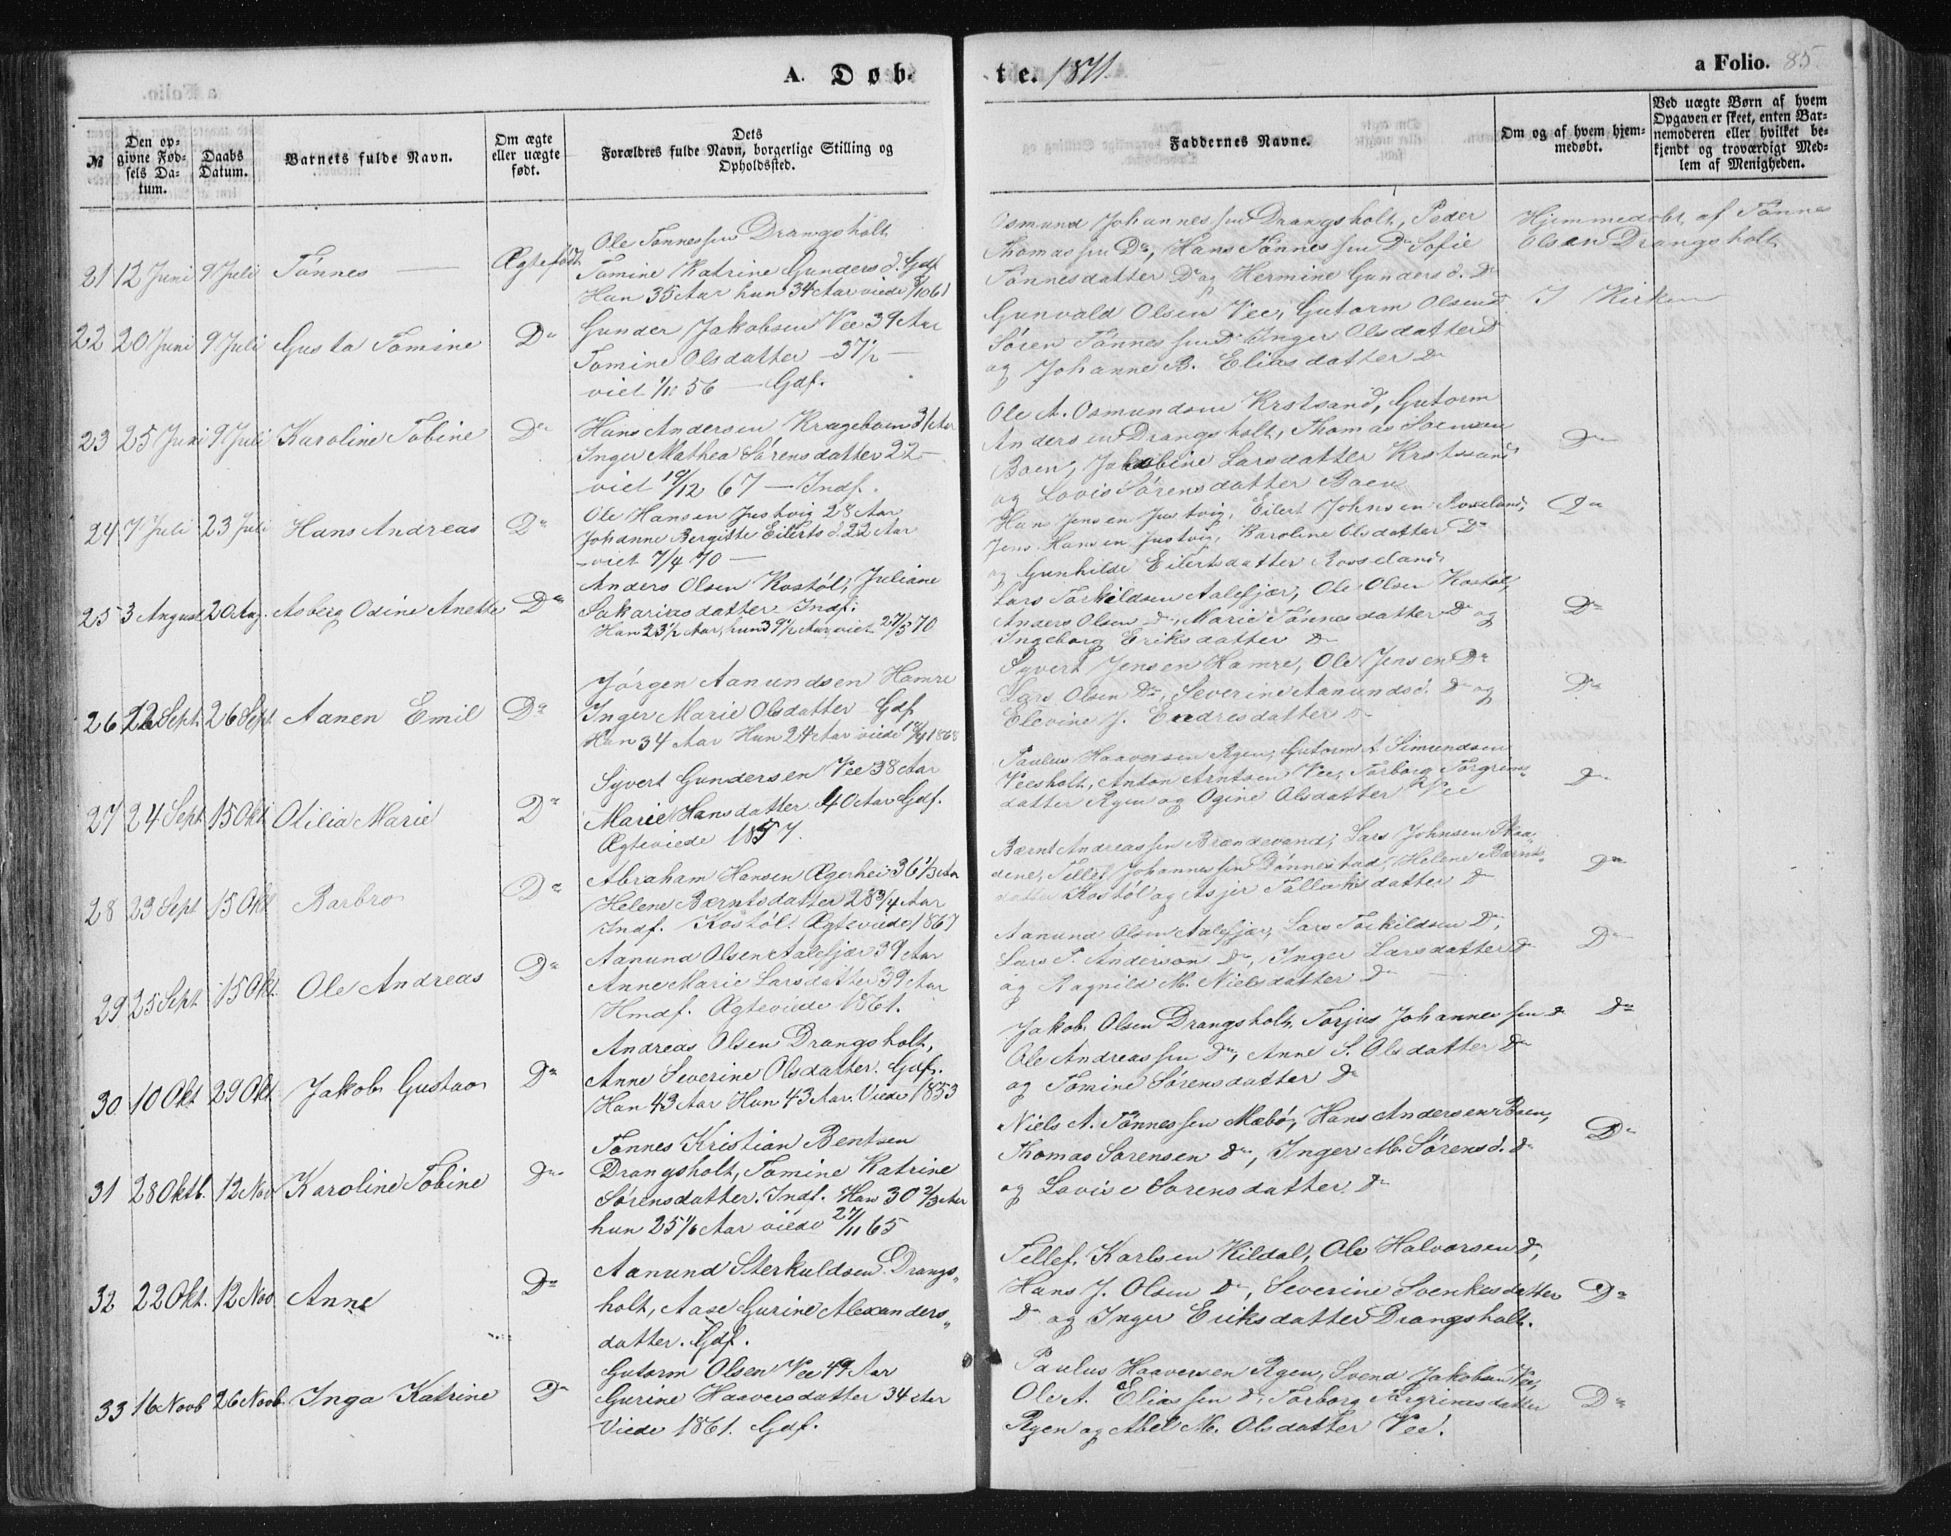 A. Døb-
te. 1871.
a Folio. 85
№
Den op-
givne Fød-
sels Da-
tum.
Daabs
Datum.
Barnets fulde Navn.
Om ægte
eller uægte
født.
Dets
Forældres fulde Navn, borgerlige Stilling og
Opholdssted.
Faddernes Navne.
Om og af hvem hjem-
medøbt.
Ved uægte Børn af hvem
Opgaven er skeet, enten Bar-
nemoderen eller hvilket be-
kjendt og troværdigt Med-
lem af Menigheden.
21 12 Juni 9 Juli Tönnes — Ægtefödt
Ole Tönnessen Drangsholt
Tomine Katrine Gundersd. Gdf
Han 35 Aar hun 34 Aar viede 5/10 61
Osmund Johannessen Drangsholt, Peder
Thomassen Do, Hans Tönnessen Do Sofie
Tönnesdatter Do og Hermine Gundersd. Do
Hjemmedöbt af Tönnes
Olsen Drangsholt
22 20 Juni 9 Juli Gusta Tomine Do
Gunder Jakobsen Vee 39 Aar
Tomine Olsdatter – 37½ –
viet 1/11 56 — Gdf.
Gunvald Olsen Vee, Gutorm Olsen Do
Sören Tönnessen Do Inger Olsdatter Do
og Johanne B. Eliasdatter Do
I Kirken
23 25 Juni 9 Juli Karoline Tobine Do
Hans Andersen Krageboen 31 Aar
Inger Mathea Sörensdatter 22 –
viet 10/12 67 — Indf.
Ole A. Osmundsen Krstsand, Gutorm
Andersen Drangsholt, Thomas Sörensen
Boen, Jakobine Larsdatter Krstsand
og Lovise Sörensdatter Boen
Do
24 7 Juli 23 Juli Hans Andreas Do
Ole Hansen Justvig 28 Aar
Johanne Bergitte Eilertsd. 22 Aar
– viet 7/4 70 –
Han Jensen Justvig, Eilert Johnsen Rosseland,
Jens Hansen Justvig, Karoline Olsdatter Do
og Gunhilde Eilertsdatter Rosseland
Do
25 3 August 20 Aug. Asberg Odine Anette Do
Anders Olsen Kostöl, Juliane
Sakariasdatter Indf.
Han 23½ Aar, hun 39½ Aar, viet 27/5 70
Lars Torkildsen Aalefjær, Ole Olsen Kostöl,
Anders Olsen Do, Marie Tönnesdatter Do og
Ingeborg Eriksdatter Do
Do
26 22 Sept. 26 Sept. Aanen Emil Do
Jörgen Aanundsen Hamre
Inger Marie Olsdatter Gdf
Han 34 Aar Hun 24 Aar viede 1868
Syvert Jensen Hamre, Ole Jensen Do
Lars Olsen Do, Severine Aanundsd. Do og
Elevine J. Endresdatter Do
Do
27 24 Sept 15 Okt Otilia Marie Do
Syvert Gundersen Vee 38 Aar
Marie Hansdatter 40 Aar Gdf.
Ægteviede 1857.
Paulus Haaversen Ryen, Gutorm A Simundsen
Veesholt, Anton Arntsen Vee, Torborg Torgrims-
datter Ryen og Ogine Olsdatter Vee
Do
28 23 Sept 15 Okt Barbro Do
Abraham Hansen Ægerhei 36 1/3 Aar
Helene Berntsdatter 28 3/4 Aar
Indf. Kostöl. Ægteviede 1867
Bernt Andreassen Brandevand, Lars Johnsen Skaa-
dene, Tellef Johannessen Dönnestad, Helene Bernts-
datter Kostöl og Asjer Tellefsdatter Do
Do
29 25 Sept. 15 Okt. Ole Andreas Do
Aanund Olsen Aalefjær 39 Aar
Anne Marie Larsdatter 39 Aar
Hmdf. Ægteviede 1861.
Aanund Olsen Aalefjær, Lars Torkildsen Do,
Lars T. Anderson Do, Inger Larsdatter Do
og Ragnild M. Nielsdatter Do
Do
30 10 Okt 29 Okt. Jakob Gustav Do
Andreas Olsen Drangsholt,
Anne Severine Olsdatter. Gdf.
Han 43 Aar Hun 43 Aar. Viede 1853
Jakob Olsen Drangsholt, Torjus Johannessen Do
Ole Andreassen Do, Anne S. Olsdatter Do
og Tomine Sörensdatter Do
Do
31 28 Oktb. 12 Nov Karoline Tobine Do
Tönnes Kristian Bentsen
Drangsholt, Tomine Katrine
Sörensdatter. Indf. Han 30 2/3 Aar
hun 25 1/6 Aar viede 27/11 65
Niels A. Tönnessen Mæbö, Hans Andersen Boen,
Thomas Sörensen Do, Inger M. Sörensd. Do
og Lovise Sörensdatter Do
Do
32 22 Okt. 12 Nov Anne Do
Aanund Sterkuldsen Drangs-
holt, Aase Gurine Alexanders-
datter. Gdf.
Tellef Karlsen Kildal, Ole Halvorsen Do,
Hans J. Olsen Do, Severine Svenkesdatter
Do og Inger Eriksdatter Drangsholt.
Do
33 16 Novb 26 Novb. Inga Katrine Do
Gutorm Olsen Vee 49 Aar
Gurine Haaversdatter 34 Aar
Viede 1861. Gdf.
Paulus Haaversen Ryen, Svend Jakobsen Vee,
Ole A. Eliassen Do, Torborg Torgrimsdatter
Ryen og Abel M. Olsdatter Vee.
Do